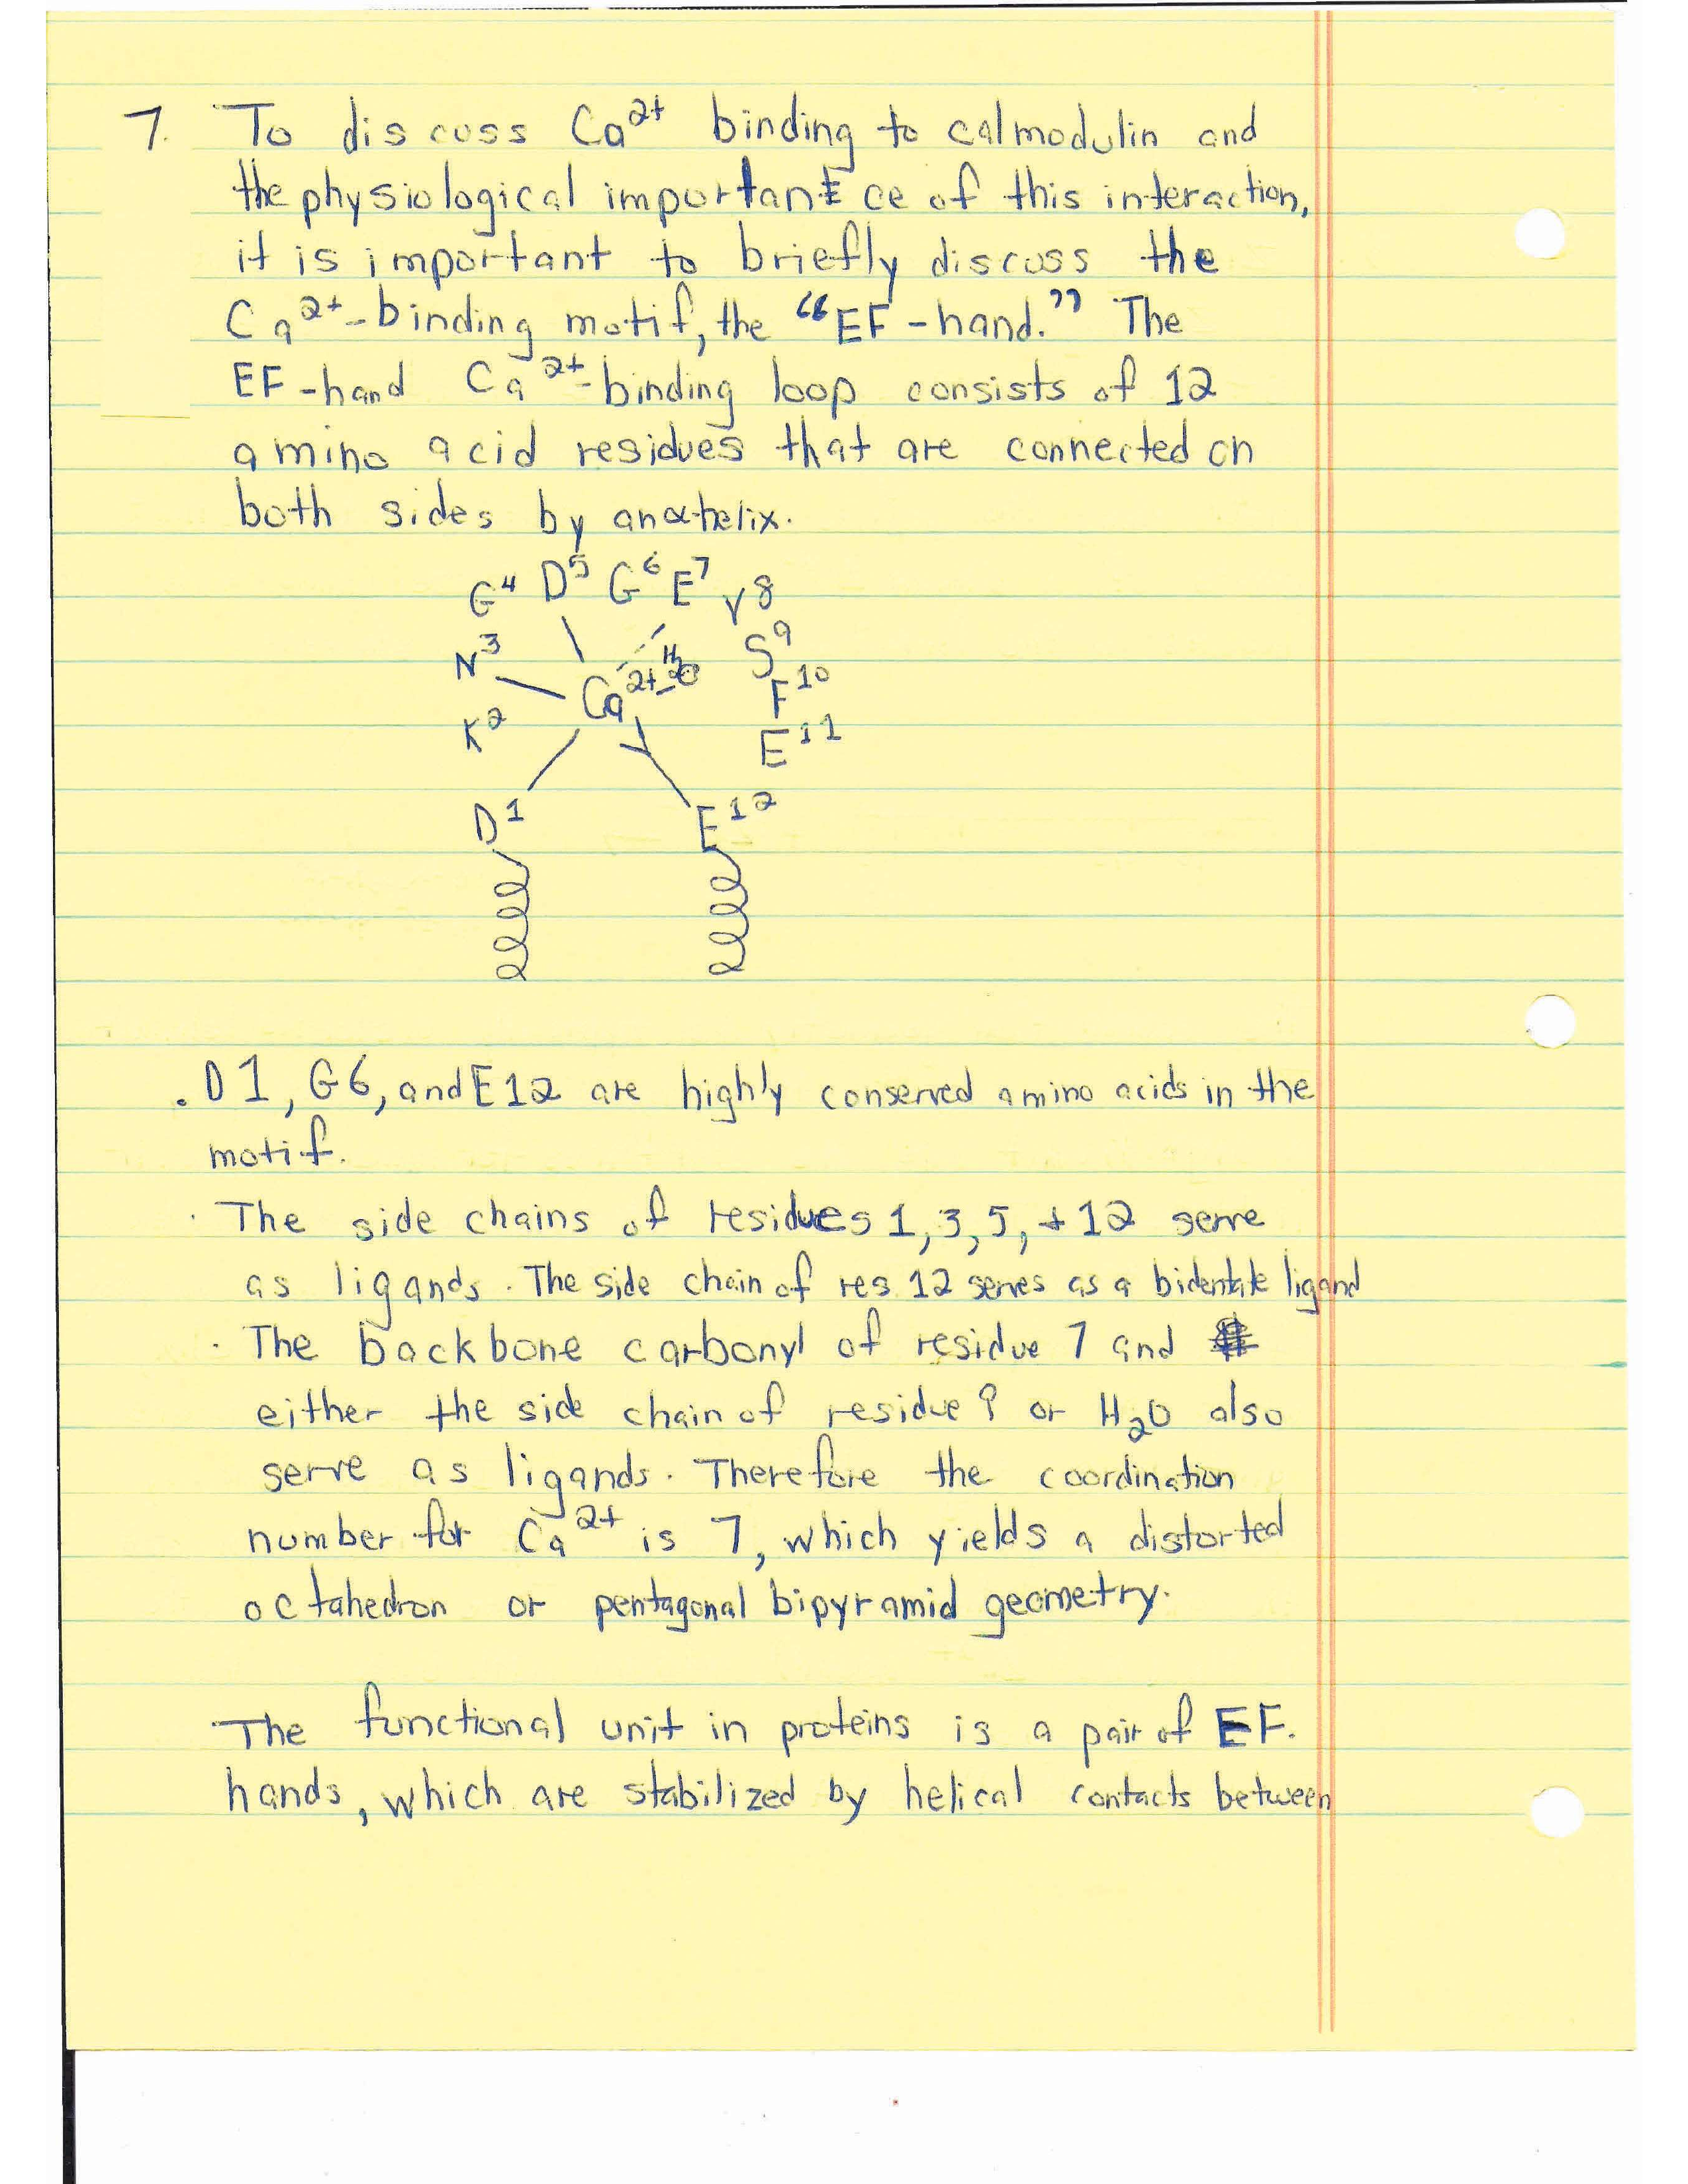 7. To discuss Ca²⁺ binding to calmodulin and
the physiological importance of this interaction,
it is important to briefly discuss the
Ca²⁺-binding motif, the “EF-hand.” The
EF-hand Ca²⁺-binding loop consists of 12
amino acid residues that are connected on
both sides by an α-helix.
G⁴ D⁵ G⁶ E⁷ Y8
N³ S⁹
Ca²⁺ H₂O F¹⁰
K² E¹¹
D¹ E¹²
. D1, G6, and E12 are highly conserved amino acids in the
motif.
· The side chains of residues 1, 3, 5, + 12 serve
as ligands. The side chain of res 12 serves as a bidentate ligand
· The backbone carbonyl of residue 7 and
either the side chain of residue 9 or H₂O also
serve as ligands. Therefore the coordination
number for Ca²⁺ is 7, which yields a distorted
octahedron or pentagonal bipyramid geometry.
The functional unit in proteins is a pair of EF-
hands, which are stabilized by helical contacts between